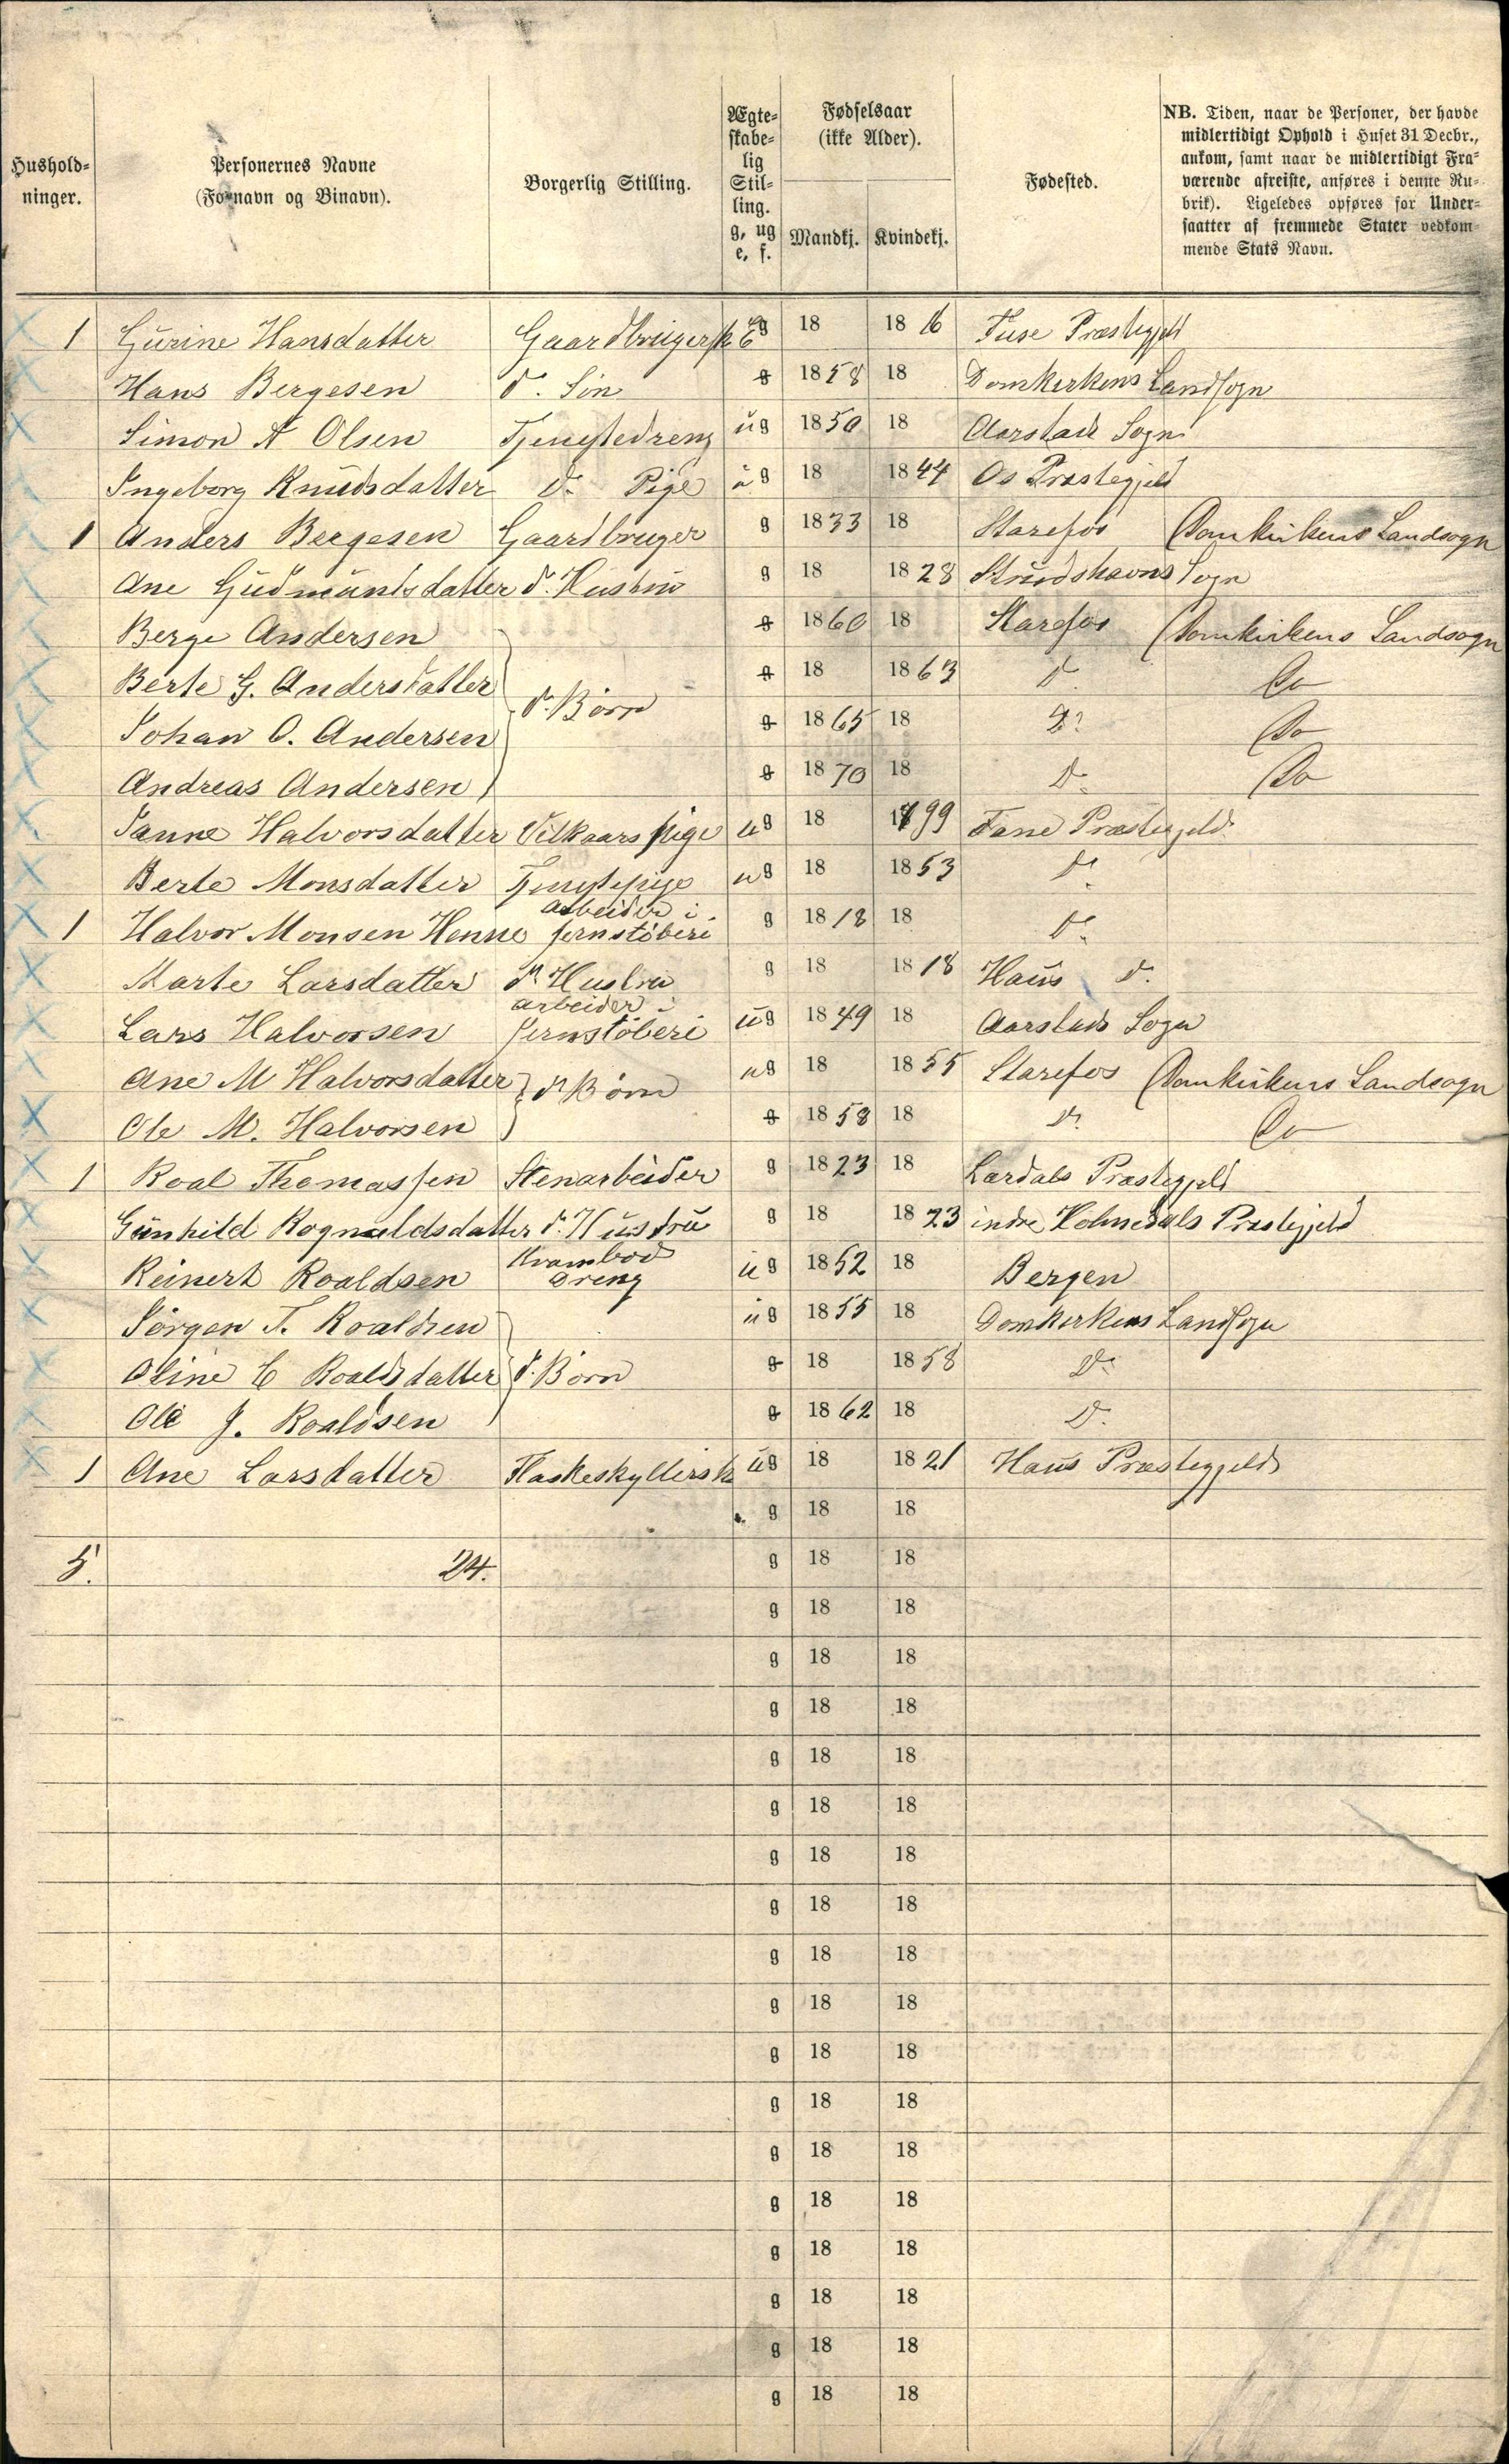 Hushold-
ninger.
Personernes Navne
(Fornavn og Binavn).
Borgerlig Stilling.
Ægte-
skabe-
lig
Stil-
ling.
g, ug
e, f.
Fødselsaar
(ikke Alder).
Mandkj.
Kvindekj.
Fødested.
NB. Tiden, naar de Personer, der havde
midlertidigt Ophold i Huset 31 Decbr.,
ankom, samt naar de midlertidigt Fra-
værende afreiste, anføres i denne Ru-
brik). Ligeledes opføres for Under-
saatter af fremmede Stater vedkom-
mende Stats Navn.
1 Gurine Hansdatter Gaardbrugerske E 18 1816 Fuse Præstegjeld
Hans Bergesen do Søn g 1858 18 Domkirkens Landsogn
Simon A Olsen Tjenestedreng ug 1850 18 Aarstad Sogn
Ingeborg Knudsdatter do Pige ug 18 1844 Os Præstegjeld
1 Anders Bergesen Gaardbruger g 1833 18 Starefos (Domkirkens Landsogn
Ane Gudmundsdatter do Hustru g 18 1828 Strudshavns Sogn
Berge Andersen g 1860 18 Starefos (Domkirkens Landsogn
Berte G. Andersdatter g 18 1863 do Do
do Børn
Johan O. Andersen g 1865 18 do Do
Andreas Andersen g 1870 18 do Do
Janne Halvorsdatter Vilkaarspige ug 18 1799 Fane Præstegjeld
Berte Monsdatter Tjenestepige ug 18 1853 do
1 Halvor Monsen Henne arbeider i jernstøberi g 1818 18 do
Marte Larsdatter do Hustru g 18 1818 Haus do
Lars Halvorsen arbeider i jernstøberi ug 1849 18 Aarstads Sogn
Ane M Halvorsdatter do Børn ug 18 1855 Starefos (Domkirkens Landsogn
Ole M. Halvorsen g 1858 18 do Do
1 Roal Thomassen Stenarbeider g 1823 18 Lærdals Præstegjeld
Gunhild Rognaldsdatter do Hustru g 18 1823 indre Holmedals Præstegjeld
Reinert Roaldsen Krambod dreng ug 1852 18 Bergen
Jørgen T. Roaldsen ug 1855 18 Domkirkens Landsogn
Oline C Roaldsdatter do Børn g 18 1858 do
Ole J. Roaldsen g 1862 18 do
1 Ane Larsdatter Flaskeskyllerske ug 18 1821 Haus Præstegjeld
g 18 18
5. 24. g 18 18
g 18 18
g 18 18
g 18 18
g 18 18
g 18 18
g 18 18
g 18 18
g 18 18
g 18 18
g 18 18
g 18 18
g 18 18
g 18 18
g 18 18
g 18 18
g 18 18
g 18 18